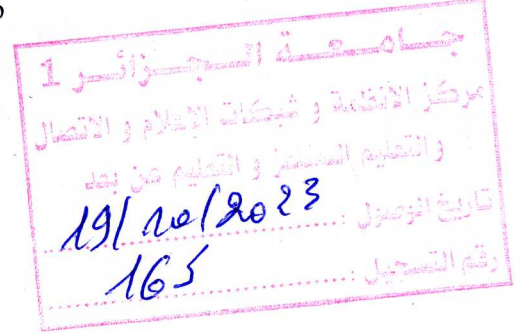 جامعة الجزائر 1
مركز الأنظمة و شبكات الإعلام و الاتصال
و التعليم المتلفز و التعليم عن بعد
تاريخ الوصول : 19/10/2023
رقم التسجيل : 165